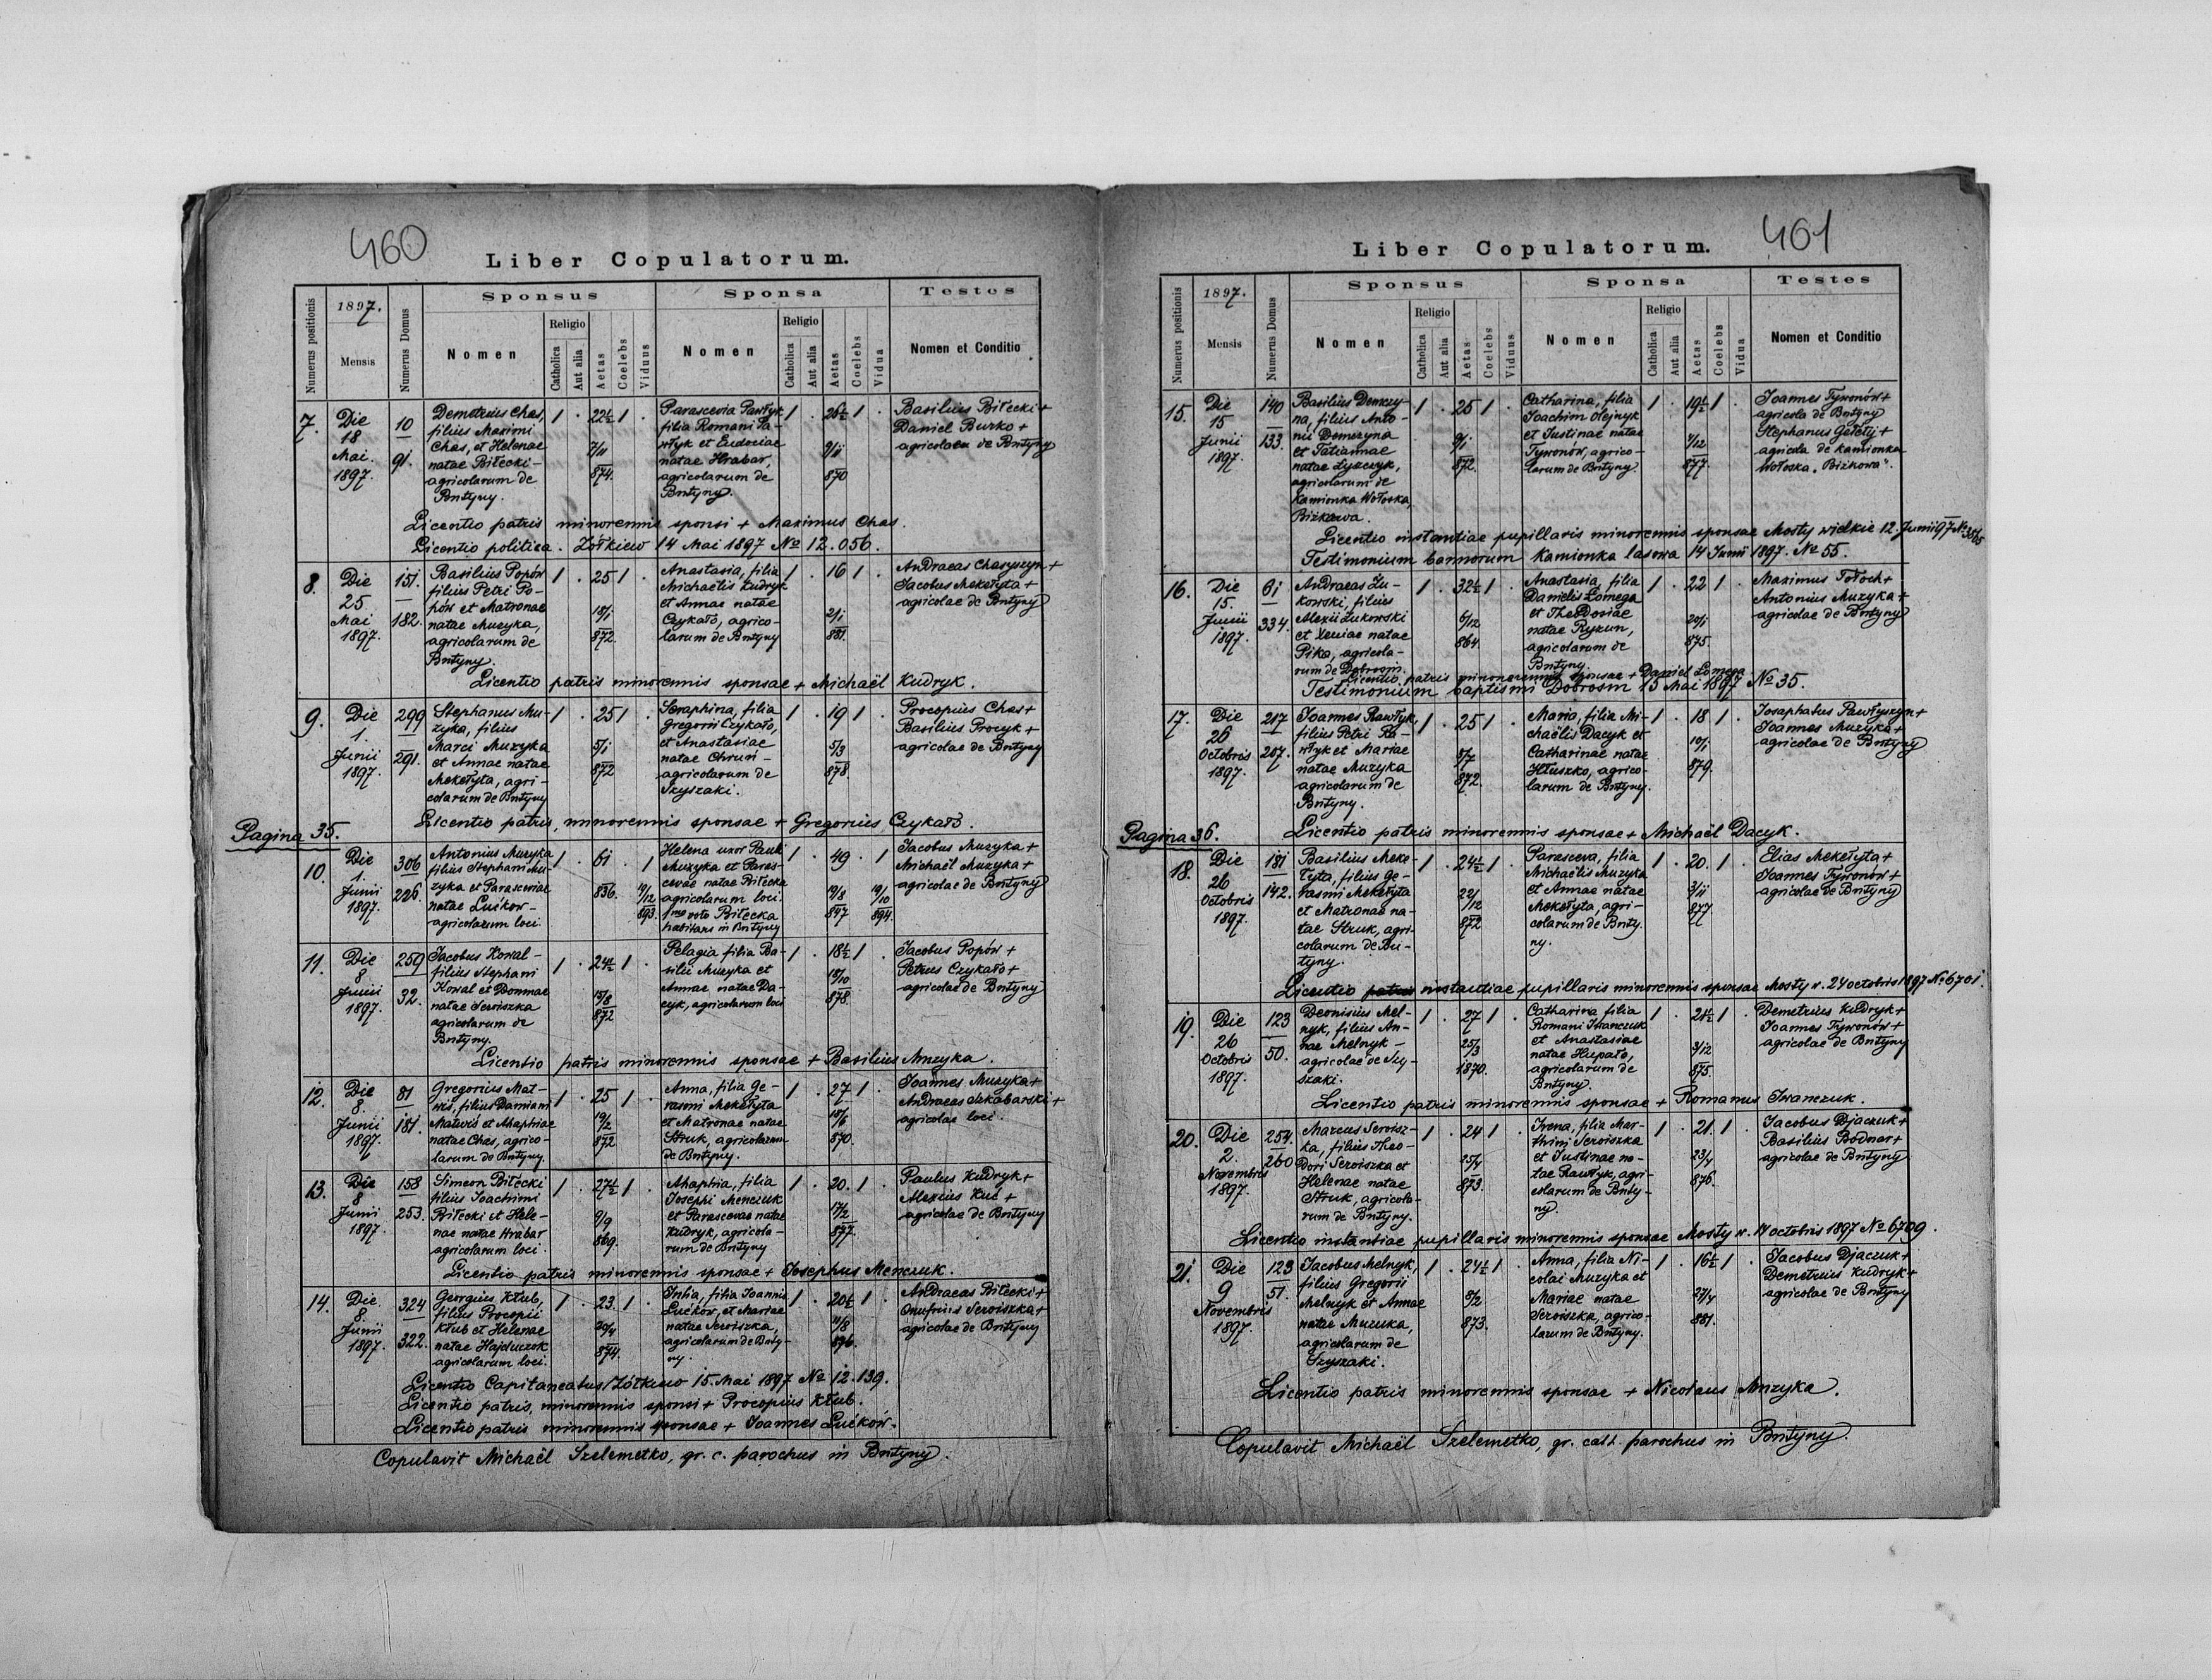 460
Liber Copulatorum.
Numerus positionis
1897.
Mensis
Numerus Domus
Sponsus
Sponsa
Testes
Nomen
Religio
Catholica
Aut alia
Aetas
Coelebs
Viduus
Nomen
Religio
Catholica
Aut alia
Aetas
Coelebs
Vidua
Nomen et Conditio
7.
Die
18
Mai.
1897.
10
91.
Demetrius Chas,
filius Maximi
Chas, et Helenae
natae Biłecki-
agricolarum de
Butyny.
1 . 22½ 1 .
7/11
874.
Parascevia Pawłyk
filia Romani Pa-
włyk et Eudociae
natae Hrabar,
agricolarum de
Butyny.
1 . 26½ 1 .
9/11
870
Basilius Biłecki +
Daniel Burko +
agricolae de Butyny
Licentio patris minorennis sponsi + Maximus Chas.
Licentio politica. Żółkiew 14 Mai 1897 No 12.056.
8.
Die
25
Mai
1897.
151.
182.
Basilius Popów
filius Petri Po-
pów et Matronae
natae Muzyka,
agricolarum de
Butyny.
1 . 25 1 .
18/1
872.
Anastasia, filia
Michaëlis Kudryk
et Annae natae
Czykało, agrico-
larum de Butyny
1 . 16 1 .
21/1
881.
Andraeas Chasyszyn +
Jacobus Mekełyta +
agricolae de Butyny
Licentio patris minorennis sponsae + Michaël Kudryk.
9.
Die
1.
Junii
1897.
299
291.
Stephanus Mu-
zyka, filius
Marci Muzyka
et Annae natae
Mekełyta, agri-
colarum de Butyny
1 . 25 1 .
5/1
872
Seraphina, filia
Gregorii Czykało,
et Anastasiae
natae Chrun-
agricolarum de
Szyszaki.
1 . 19 1 .
5/3
878.
Procopius Chas +
Basilius Procyk +
agricolae de Butyny
Licentio patris, minorennis sponsae + Gregorius Czykało.
Pagina 35.
10.
Die
1.
Junii
1897.
306
226.
Antonius Muzyka
filius Stephani Mu-
zyka et Parasceviae
natae Łućkow-
agricolarum loci.
1 . 61 . 1
836.
893.
Helena uxor Pauli
Muzyka et Paras-
cevae natae Biłecka
agricolarum loci.
1mo voto Biłecka
habitans in Butyny
1 . 49 . 1
19/8
847
19/10
894.
Jacobus Muzyka +
Michaël Muzyka +
agricolae de Butyny
11.
Die
8
Junii
1897.
259
32.
Jacobus Kowal-
filius Stephani
Kowal et Domnae
natae Seroiszka
agricolarum de
Butyny.
1 . 24½ 1 .
872
Pelagia filia Ba-
silii Muzyka et
Annae natae Da-
cyk, agricolarum loci
1 . 18½ 1 .
18/10
878.
Jacobus Popów +
Petrus Czykało +
agricolae de Butyny
Licentio patris minorennis sponsae + Basilius Muzyka.
12.
Die
8.
Junii
1897.
81
181.
Gregorius Mat-
wis, filius Damiani
Matwis et Ahaphiae
natae Chas, agrico-
larum de Butyny.
1 . 25 1 .
19/2
872
Anna, filia Ge-
rasmi Mekełyta
et Matronae natae
Struk, agricolarum
de Butyny.
1 . 27 1 .
18/6
870.
Joannes Muzyka +
Andraeas Skabarski +
agricolae loci.
13.
Die
8
Junii
1897.
158
253.
Simeon Biłecki
filius Joachimi
Biłecki et Hele-
nae natae Hrabar
agricolarum loci.
1 . 27½ 1 .
9/9
869.
Ahaphia, filia
Josephi Menczuk
et Parascevae natae
Kudryk, agricola-
rum de Butyny
1 . 20. 1 .
17/2
877.
Paulus Kudryk +
Alexius Kuś +
agricolae de Butyny
Licentio patris minorennis sponsae + Josephus Menczuk.
14.
Die.
8.
Junii
1897.
324
322.
Georgius Kłub,
filius Procopii
Kłub et Helenae
natae Hajduczok
agricolarum loci.
1 . 23. 1 .
20/4
874.
Julia, filia Joannis
Łućków, et Mariae
natae Seroiszka,
agricolarum de Buty-
ny.
1 . 20½ 1 .
11/8
876.
Andraeas Biłecki +
Onufrius Seroiszka +
agricolae de Butyny
Licentio Capitaneatus Żółkiew 15. Mai 1897 No 12.139.
Licentio patris, minorennis sponsi + Procopius Kłub.
Licentio patris minorennis sponsae + Joannes Łućków.
Copulavit Michaël Szelemetko, gr. c. parochus in Butyny.
461
Liber Copulatorum.
Numerus positionis
1897.
Mensis
Numerus Domus
Sponsus
Sponsa
Testes
Nomen
Religio
Catholica
Aut alia
Aetas
Coelebs
Viduus
Nomen
Religio
Catholica
Aut alia
Aetas
Coelebs
Vidua
Nomen et Conditio
15.
Die
15
Junii
1897.
140
133.
Basilius Demczy-
na, filius Anto-
nii Demczyna
et Tatiannae
natae Łyszczyk,
agricolarum de
Kamionka Wołoska,
Biżkowa.
1 . 25 1 .
9/1
872.
Catharina, filia
Joachim Olejnyk
et Justinae natae
Tywonów, agrico-
larum de Butyny
1 . 19½ 1 .
7/12
877.
Joannes Tywonów +
agricola de Butyny
Stephanus Gełetij +
agricola de Kamionka
Wołoska „Biżkowa".
Licentio instantiae pupillaris minorennis sponsae Mosty wielkie 12. Junii 97 No
Testimonium bannorum Kamionka lasowa 14 Junii 1897. No 55.
16.
Die
15.
Junii
1897.
61
334.
Andraeas Żu-
kowski, filius
Alexii Żukowski
et Xeniae natae
Pika, agricola-
rum de Dobrosin.
1 . 32½ 1 .
6/12
864.
Anastasia, filia
Danielis Łomega
et Theodosiae
natae Ryzun,
agricolarum de
Butyny.
1 . 22 1 .
20/1
875.
Maximus Tołoch +
Antonius Muzyka +
agricolae de Butyny
Licentio patris minorennis sponsae + Daniel Łomega
Testimonium baptismi Dobrosin 15 Mai 1897 No 35.
17.
Die
26
Octobris
1897.
217
207.
Joannes Pawłyk,
filius Petri Pa-
włyk et Mariae
natae Muzyka
agricolarum de
Butyny.
1 . 25 1 .
8/7
872.
Maria, filia Mi-
chaëlis Dacyk et
Catharinae natae
Hłuszko, agrico-
larum de Butyny.
1 . 18 1 .
10/1
879.
Josaphatus Pawłyszyn +
Joannes Muzyka +
agricolae de Butyny
Licentio patris minorennis sponsae + Michaël Dacyk.
Pagina 36.
18.
Die
26
Octobris
1897.
181
142.
Basilius Meke-
łyta, filius Ge-
rasmi Mekełyta
et Matronae na-
tae Struk, agri-
colarum de Bu-
tyny.
1 . 24½ 1 .
22/12
872
Parasceva, filia
Michaëlis Muzyka
et Annae natae
Mekełyta, agri-
colarum de Buty-
ny.
1 . 20. 1 .
3/11
877
Elias Mekełyta +
Joannes Tywonów +
agricolae de Butyny
Licentio patris instantiae pupillaris minorennis sponsae Mosty w. 24 octobris 1897 No 6701.
19.
Die
26
Octobris
1897.
123
50.
Deonisius Mel-
nyk, filius An-
nae Melnyk-
agricolae de Szy-
szaki.
1 . 27 1 .
25/3
1870.
Catharina filia
Romani Iwanczuk
et Anastasiae
natae Hupało,
agricolarum de
Butyny.
1 . 21½ 1 .
3/12
875.
Demetrius Kudryk +
Joannes Tywonów +
agricolae de Butyny
Licentio patris minorennis sponsae + Romanus Iwanczuk.
20.
Die
2.
Novembris
1897.
254.
260
Marcus Seroisz-
ka, filius Theo-
dori Seroiszka et
Helenae natae
Struk, agricola-
rum de Butyny.
1 . 24 1 .
25/4
873.
Irena, filia Mar-
thini Seroiszka
et Justinae na-
tae Pawłyk, agri-
colarum de Buty-
ny.
1 . 21. 1 .
23/4
876.
Jacobus Djaczuk +
Basilius Bodnar +
agricolae de Butyny
Licentio instantiae pupillaris minorennis sponsae Mosty w. 17 octobris 1897 No 6709.
21.
Die
9
Novembris
1897.
123
51.
Jacobus Melnyk,
filius Gregorii
Melnyk et Annae
natae Muzyka,
agricolarum de
Szyszaki.
1 . 24½ 1 .
8/2
873.
Anna, filia Ni-
colai Muzyka et
Mariae natae
Seroiszka, agrico-
larum de Butyny.
1 . 16½ 1 .
27/4
881.
Jacobus Djaczuk +
Demetrius Kudryk +
agricolae de Butyny
Licentio patris minorennis sponsae + Nicolaus Muzyka.
Copulavit Michaël Szelemetko, gr. cath. parochus in Butyny.